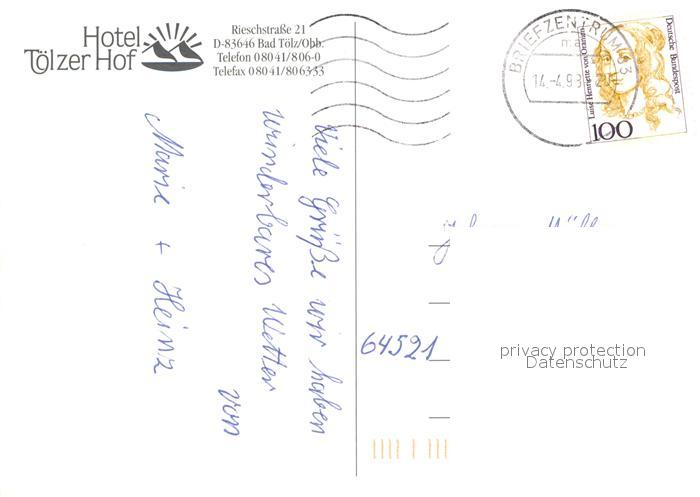 Hotel
Tölzer Hof
Rieschstraße 21
D-83646 Bad Tölz/Obb.
Telefon 08041/806-0
Telefax 08041/806333
Viele Grüße wir haben
wunderbares Wetter
von
Marie + Heinz
BRIEFZENTRUM 83
14.-4.98
Deutsche Bundespost
Luise Henriette von Oranien
100
64521
privacy protection
Datenschutz